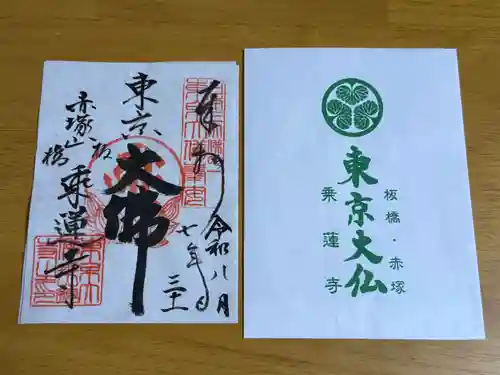 奉拝
令和七年
八月三十一日
東京大佛
板橋
赤塚山
乗蓮寺
板橋・赤塚
東京大仏
乗蓮寺